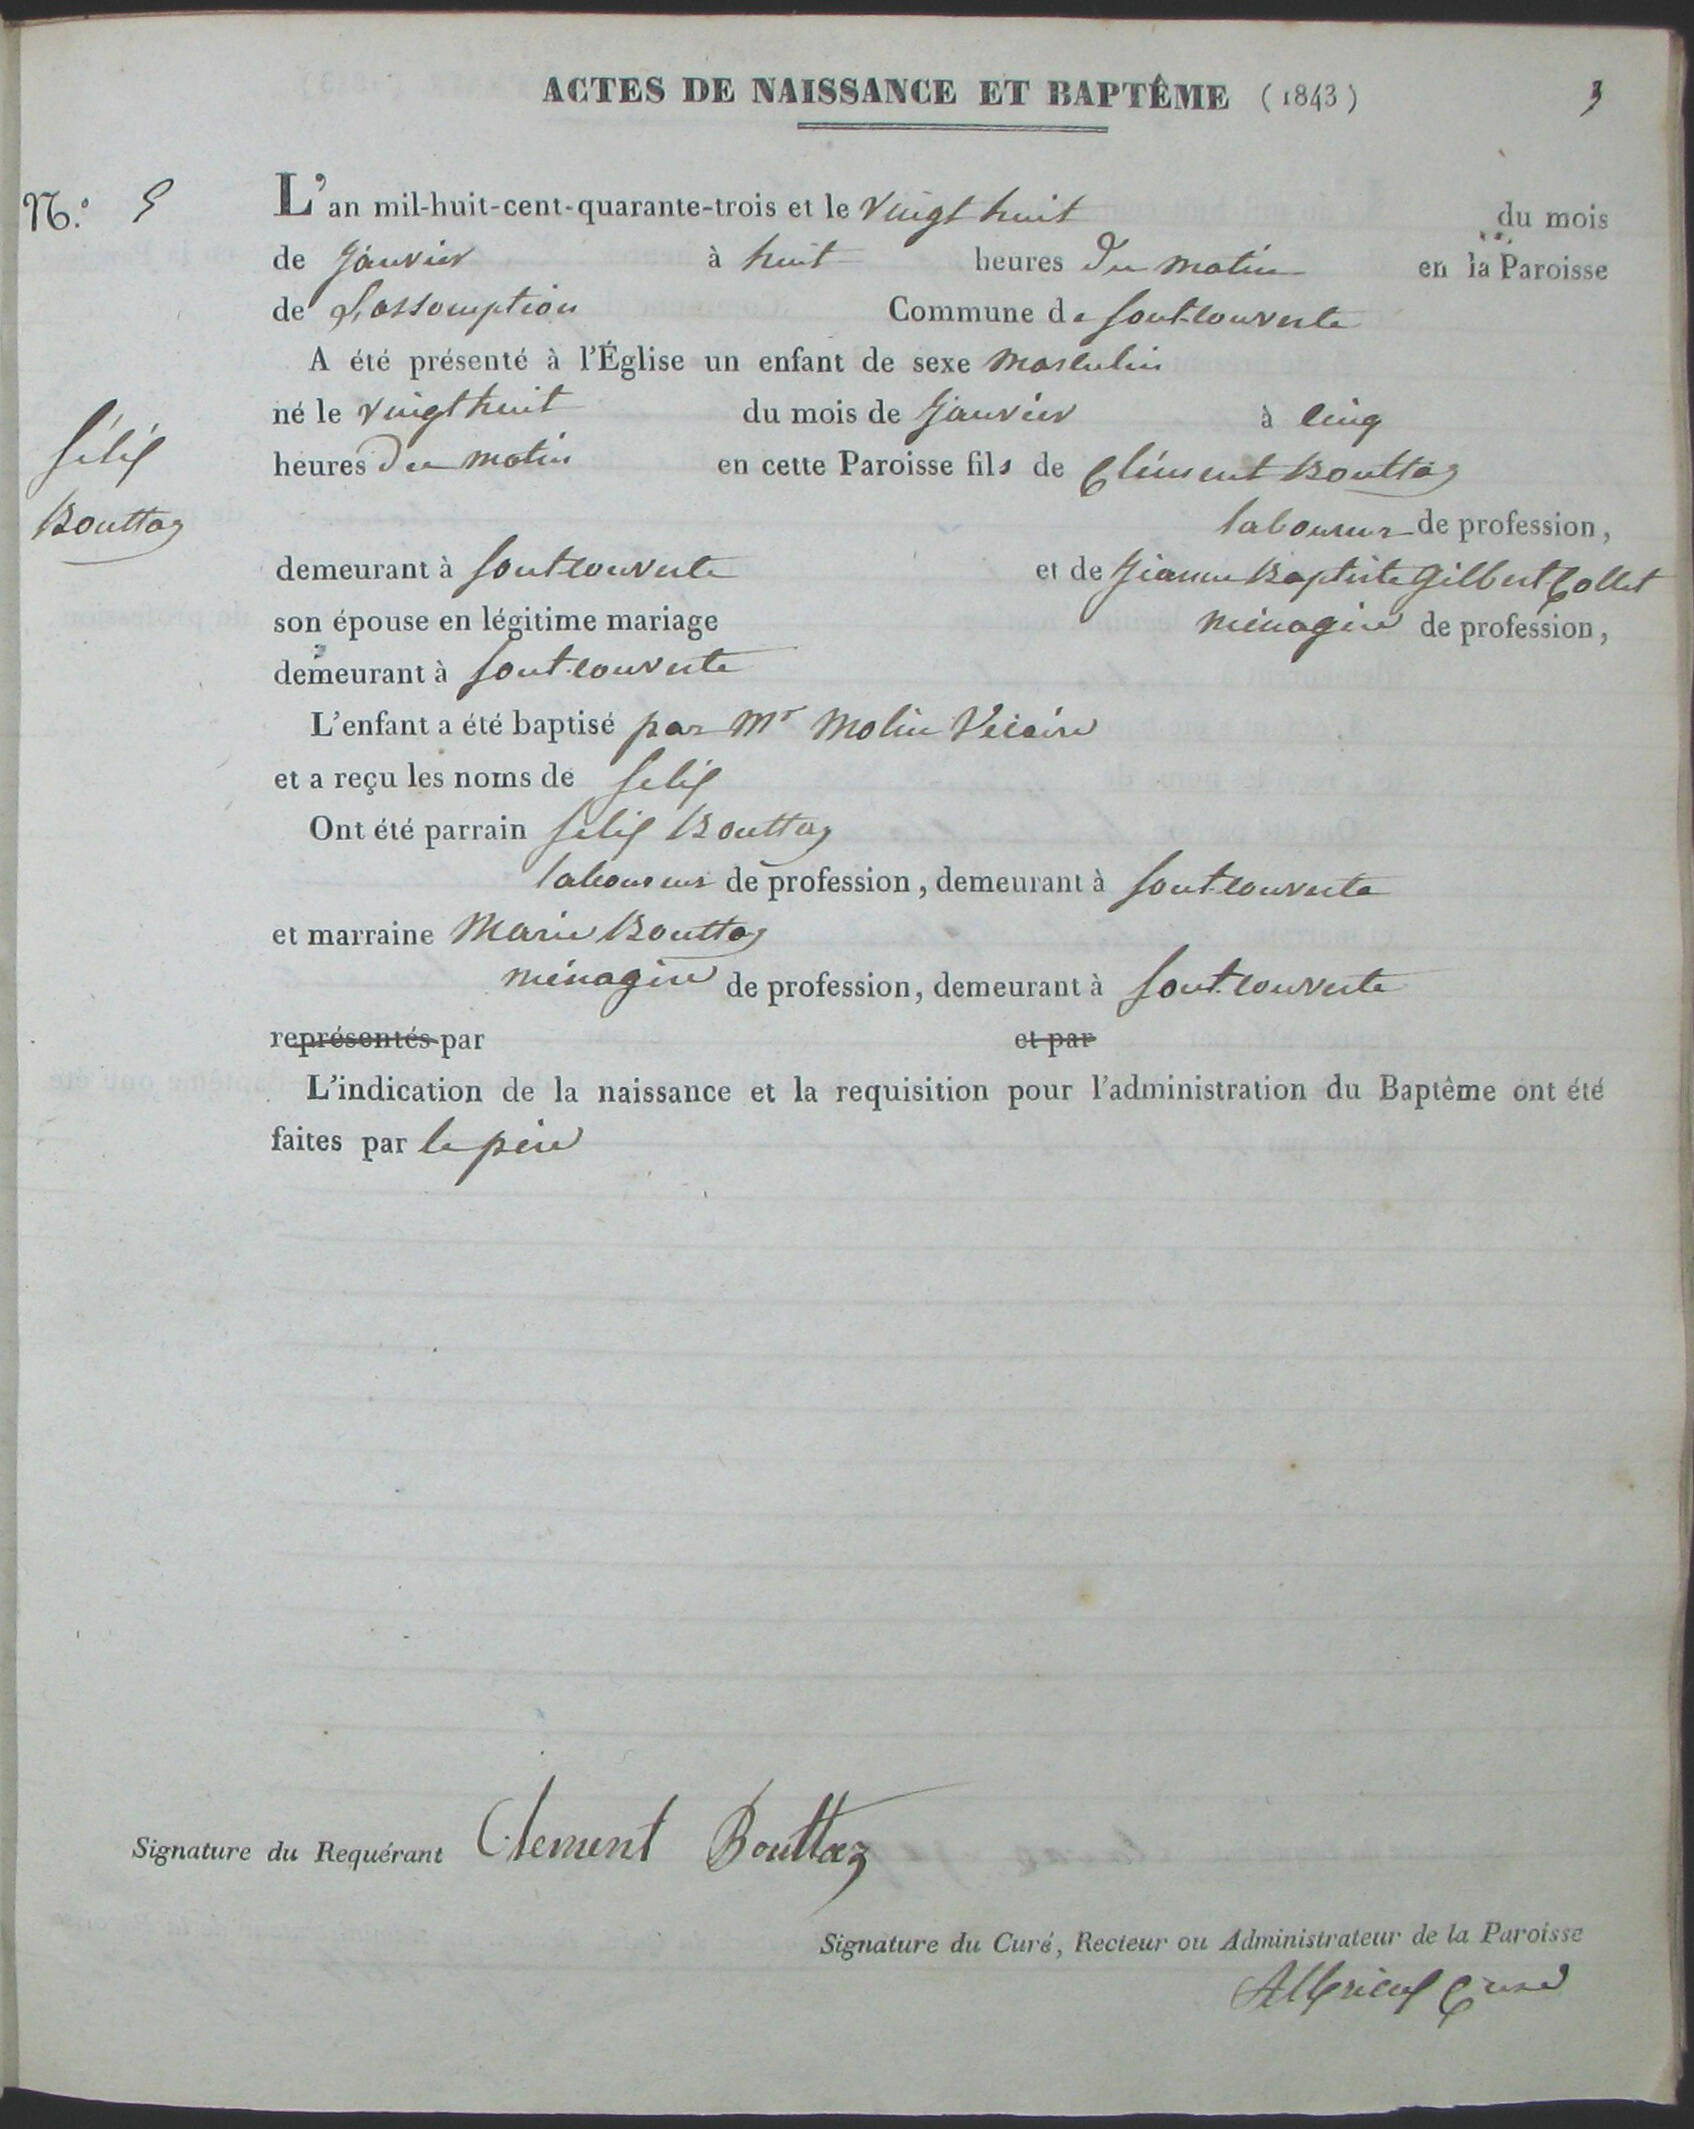 ACTES DE NAISSANCE ET BAPTÊME (1843) 3
N.º 5 L'an mil-huit-cent-quarante-trois et le vingt huit du mois
de janvier à huit heures du matin en la Paroisse
de L'assomption Commune de Fontcouverte
A été présenté à l'Église un enfant de sexe masculin
né le vingt huit du mois de janvier à cinq
heures du matin en cette Paroisse fils de Clément Bouttaz
félix
Bouttaz
laboureur de profession,
demeurant à fontcouverte et de jeanne Baptiste Gilbert Collet
son épouse en légitime mariage ménagère de profession,
demeurant à fontcouverte
L'enfant a été baptisé par Mr Molin Vicaire
et a reçu les noms de felix
Ont été parrain félix Bouttaz
laboureur de profession, demeurant à fontcouverte
et marraine Marie Bouttaz
ménagère de profession, demeurant à fontcouverte
représentés par et par
L'indication de la naissance et la requisition pour l'administration du Baptême ont été
faites par le père
Signature du Requérant Clement Bouttaz
Signature du Curé, Recteur ou Administrateur de la Paroisse
Curé